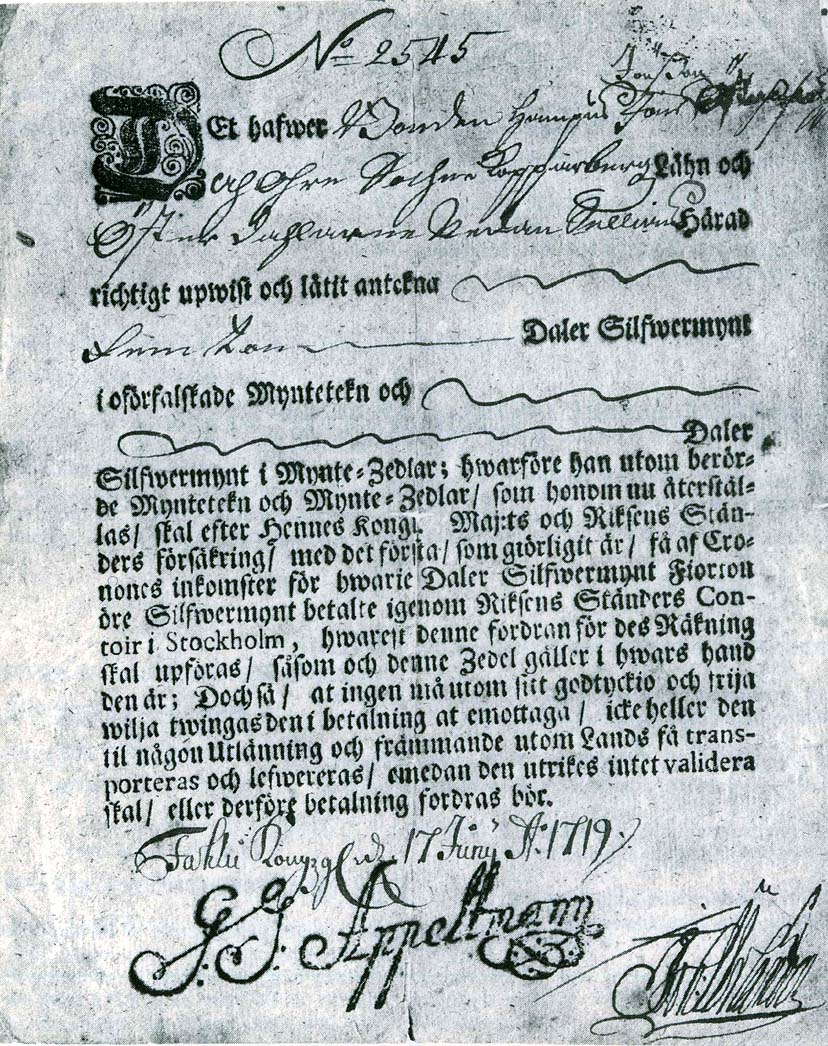 No 2545
DEt hafwer Bonden Hampus
och Ohre Sochn Kopparberg Lähn och
Öster Dahlarne Nedan Härad
richtigt upwist och låtit antekna
Daler Silfwermynt
i oförfalskade Myntetekn och
Daler
Silfwermynt i Mynte-Zedlar; hwarföre han utom berör-
de Myntetekn och Mynte-Zedlar/ som honom nu återstäl-
las/ skal efter Hennes Kongl. Maj:ts och Riksens Stän-
ders försäkring/ med det första/ som giörligit är/ få af Cro-
nones inkomster för hwarje Daler Silfwermynt Fiorton
öre Silfwermynt betalte igenom Riksens Ständers Con-
toir i Stockholm, hwarest denne fordran för des Räkning
skal upföras/ såsom och denne Zedel gäller i hwars hand
den är; Doch så/ at ingen må utom sitt godtyckio och frija
wilja twingas den i betalning at emottaga/ icke heller den
til någon Utlänning och främmande utom Lands få trans-
porteras och lefwereras/ emedan den utrikes intet validera
skal/ eller derföre betalning fordras bör.
Fahlu 17 Junij Ao. 1719.
G. G. Appeltmann